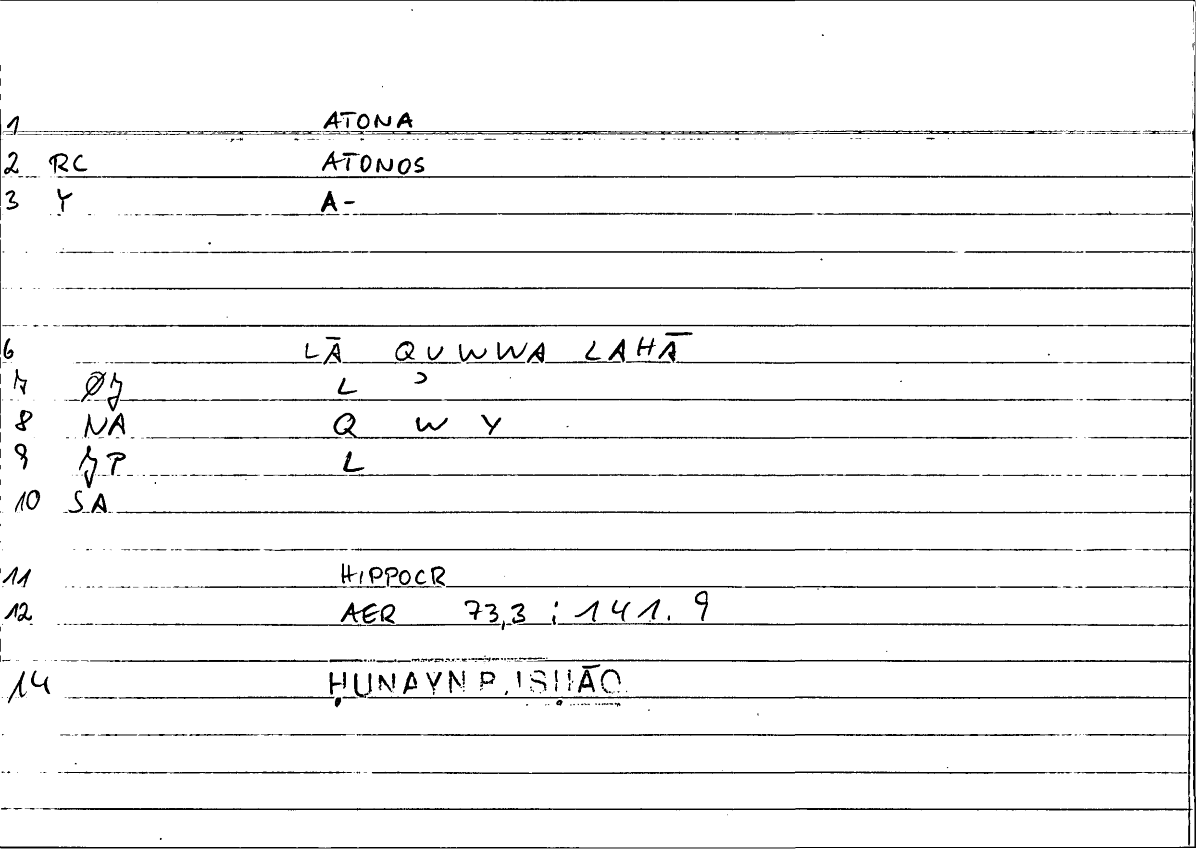 1 ATONA
2 RC ATONOS
3 Y A-
6 LĀ QUWWA LAHĀ
7 L ʾ
8 NA Q W Y
9 L
10 SA
11 HIPPOCR
12 AER 73,3 ; 141. 9
14 ḤUNAYN B. ISḤĀQ